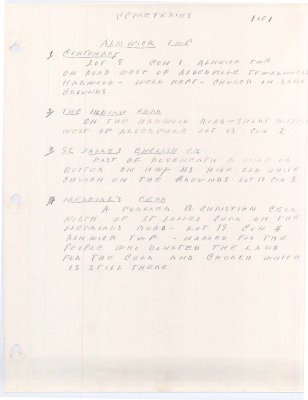 CEMETERIES
1 of 1
ALNWICK TWP
1) CENTENARY
LOT 8 CON 1 ALNWICK TWP
ON ROAD WEST OF ALDERVILLE TOWARDS
HARWOOD - WELL KEPT - CHURCH IN SAME
GROUNDS
2) THE INDIAN CEM
ON THE HARWOOD ROAD - SHORT
WEST OF ALDERVILLE LOT 13 CON 2
3) ST. JAMES ENGLISH CH
EAST OF ROSENEATH A MILE OR
BETTER ON HWY 45 NICE OLD WHITE
CHURCH ON THE GROUNDS LOT 15 CON 3
4) MERRIAL'S CEM
A FORMER B. CHRISTIAN CEM
NORTH OF ST JAMES CEM ON THE
MERRIALS ROAD - LOT 19 CON 4
ALNWICK TWP - NAMED FOR THE
PEOPLE WHO DONATED THE LAND
FOR THE CEM AND CHURCH WHICH
IS STILL THERE